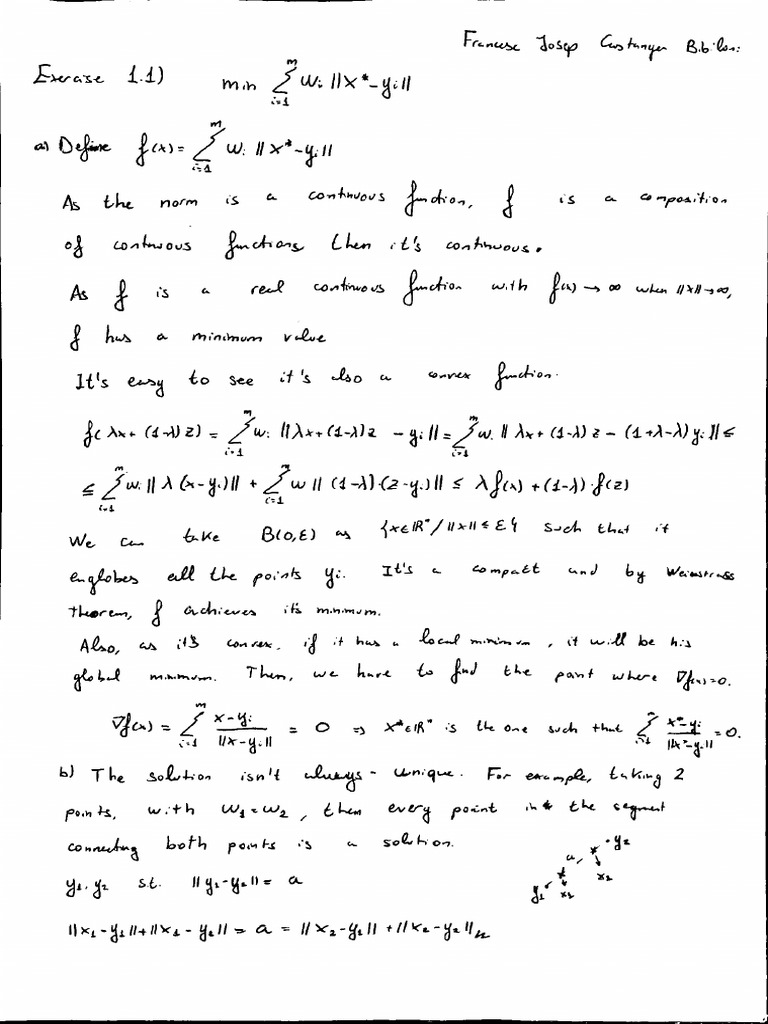 Francesc Josep Castanyer Bibiloni
Exercise 1.1) min ∑_{i=1}^{m} w_i ||x* - y_i||
a) Define f(x) = ∑_{i=1}^{m} w_i ||x* - y_i||
As the norm is a continuous function, f is a composition
of continuous functions then it's continuous.
As f is a real continuous function with f(x) → ∞ when ||x|| → ∞,
f has a minimum value
It's easy to see it's also a convex function.
f(λx + (1-λ)z) = ∑_{i=1}^{m} w_i ||λx + (1-λ)z - y_i|| = ∑_{i=1}^{m} w_i ||λx + (1-λ)z - (1+λ-λ)y_i|| ≤
≤ ∑_{i=1}^{m} w_i ||λ(x-y_i)|| + ∑_{i=1}^{m} w ||(1-λ)·(z-y_i)|| ≤ λf(x) + (1-λ)·f(z)
We can take B(0,ε) as {x∈ℝⁿ / ||x|| ≤ ε} such that it
englobes all the points y_i. It's a compact and by Weirstrass
theorem, f achieves it's minimum.
Also, as it's convex, if it has a local minimum, it will be his
global minimum. Then, we have to find the point where ∇f(x)=0.
∇f(x) = ∑_{i=1}^{m} (x-y_i)/||x-y_i|| = 0 ⇒ x*∈ℝⁿ is the one such that ∑_{i=1}^{m} (x*-y_i)/||x*-y_i|| = 0.
b) The solution isn't always unique. For example, taking 2
points, with w_1 = w_2, then every point in the segment
connecting both points is a solution.
y_1, y_2 s.t. ||y_1 - y_2|| = a
y_1 x_2 a x_2 y_2
||x_1 - y_1|| + ||x_1 - y_2|| = a = ||x_2 - y_1|| + ||x_2 - y_2||